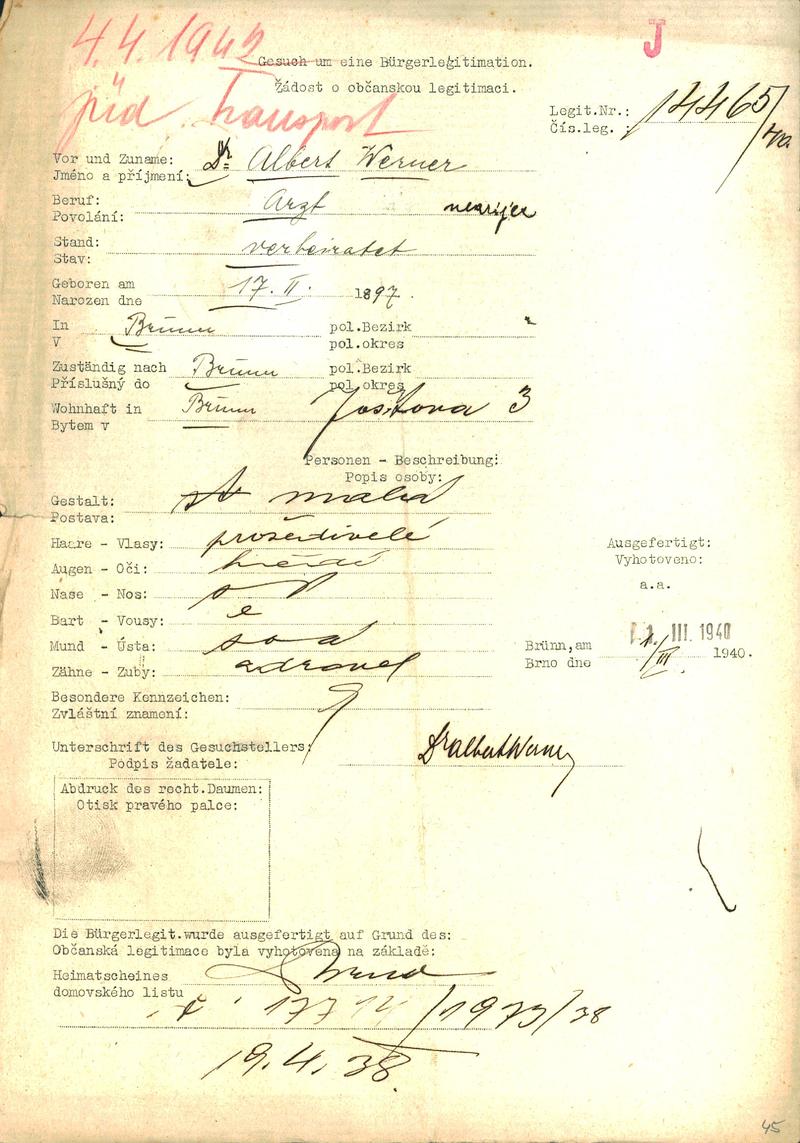 4.4.1942
J
Gesuch um eine Bürgerlegitimation.
Žádost o občanskou legitimaci.
jüd. Transport
Legit.Nr.: 14465/40
Čís.leg. :
Vor und Zuname: Dr Albert Werner
Jméno a příjmení:
Beruf: Arzt
Povolání:
Stand: verheiratet
Stav:
Geboren am 17. II. 1897.
Narozen dne
In Brünn pol.Bezirk
V pol.okres
Zuständig nach Brünn pol.Bezirk
Příslušný do pol.okres
Wohnhaft in Brünn Joštova 3
Bytem v
Personen - Beschreibung:
Popis osoby:
Gestalt: malá
Postava:
Haare - Vlasy: prošedivělé
Augen - Oči: hnědé
Nase - Nos:
Bart - Vousy:
Mund - Ústa:
Zähne - Zuby: zdravé
Ausgefertigt:
Vyhotoveno:
a.a.
III. 1940
Brünn,am 1/III 1940.
Brno dne
Besondere Kennzeichen:
Zvláštní znamení:
Unterschrift des Gesuchstellers: Dr Albert Werner
Podpis žadatele:
Abdruck des recht.Daumen:
Otisk pravého palce:
Die Bürgerlegit.wurde ausgefertigt auf Grund des:
Občanská legitimace byla vyhotovena na základě:
Heimatscheines Brno
domovského listu
/1973/38
19.4.38.
45